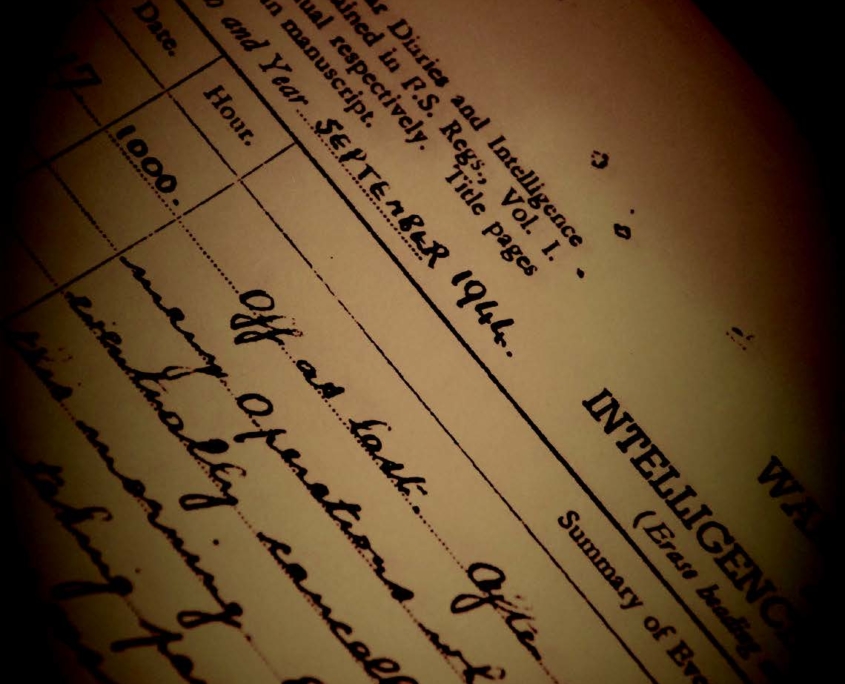 Diaries and Intelligence
in F.S. Regs., Vol. I.
respectively. Title pages
in manuscript.
and Year SEPTEMBER 1944.
WA
INTELLIGENC
(Erase heading
Date.
Hour.
Summary of Eve
17
1000.
Off at last. After
many Operations
eventually cancell
this morning.
taking